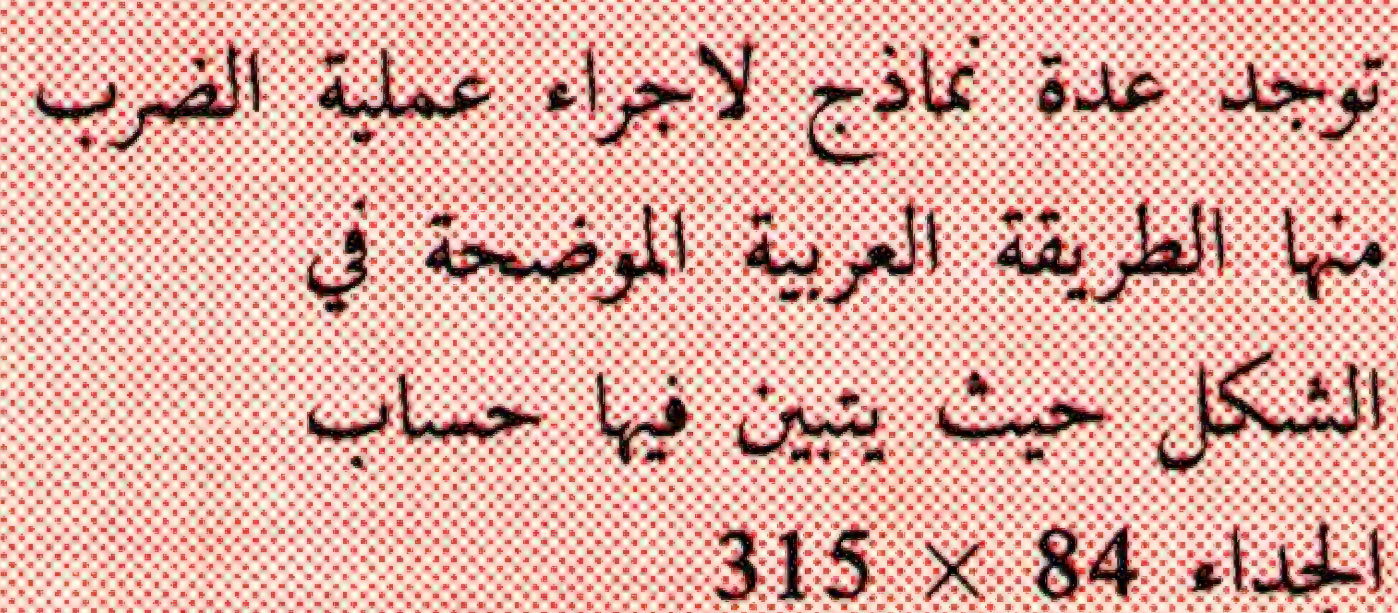 توجد عدة نماذج لاجراء عملية الضرب
منها الطريقة العربية الموضحة في
الشكل حيث يتبين فيها حساب
الجداء 84 × 315